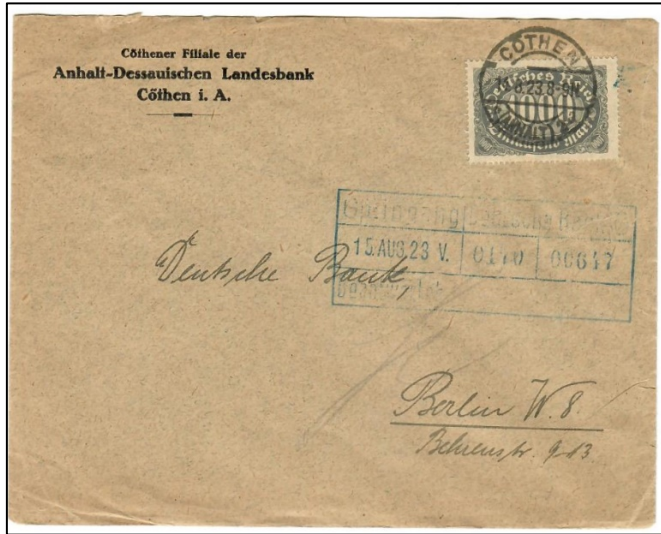 Cöthener Filiale der
Anhalt-Dessauischen Landesbank
Cöthen i. A.
CÖTHEN
8.23.8-9
(ANHALT)
Deutsches Reich
1000
Eintausend Mark
Eingang Deutsche Bank
15.AUG.23 V. 0170 00647
Deutsche Bank,
Berlin W. 8.
Behrenstr. 9-13